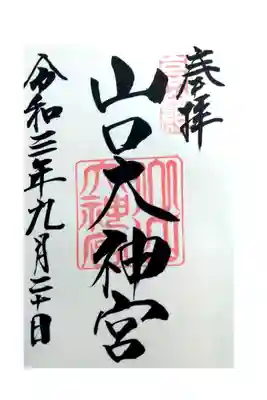 奉拝
山口大神宮
令和三年九月二十日